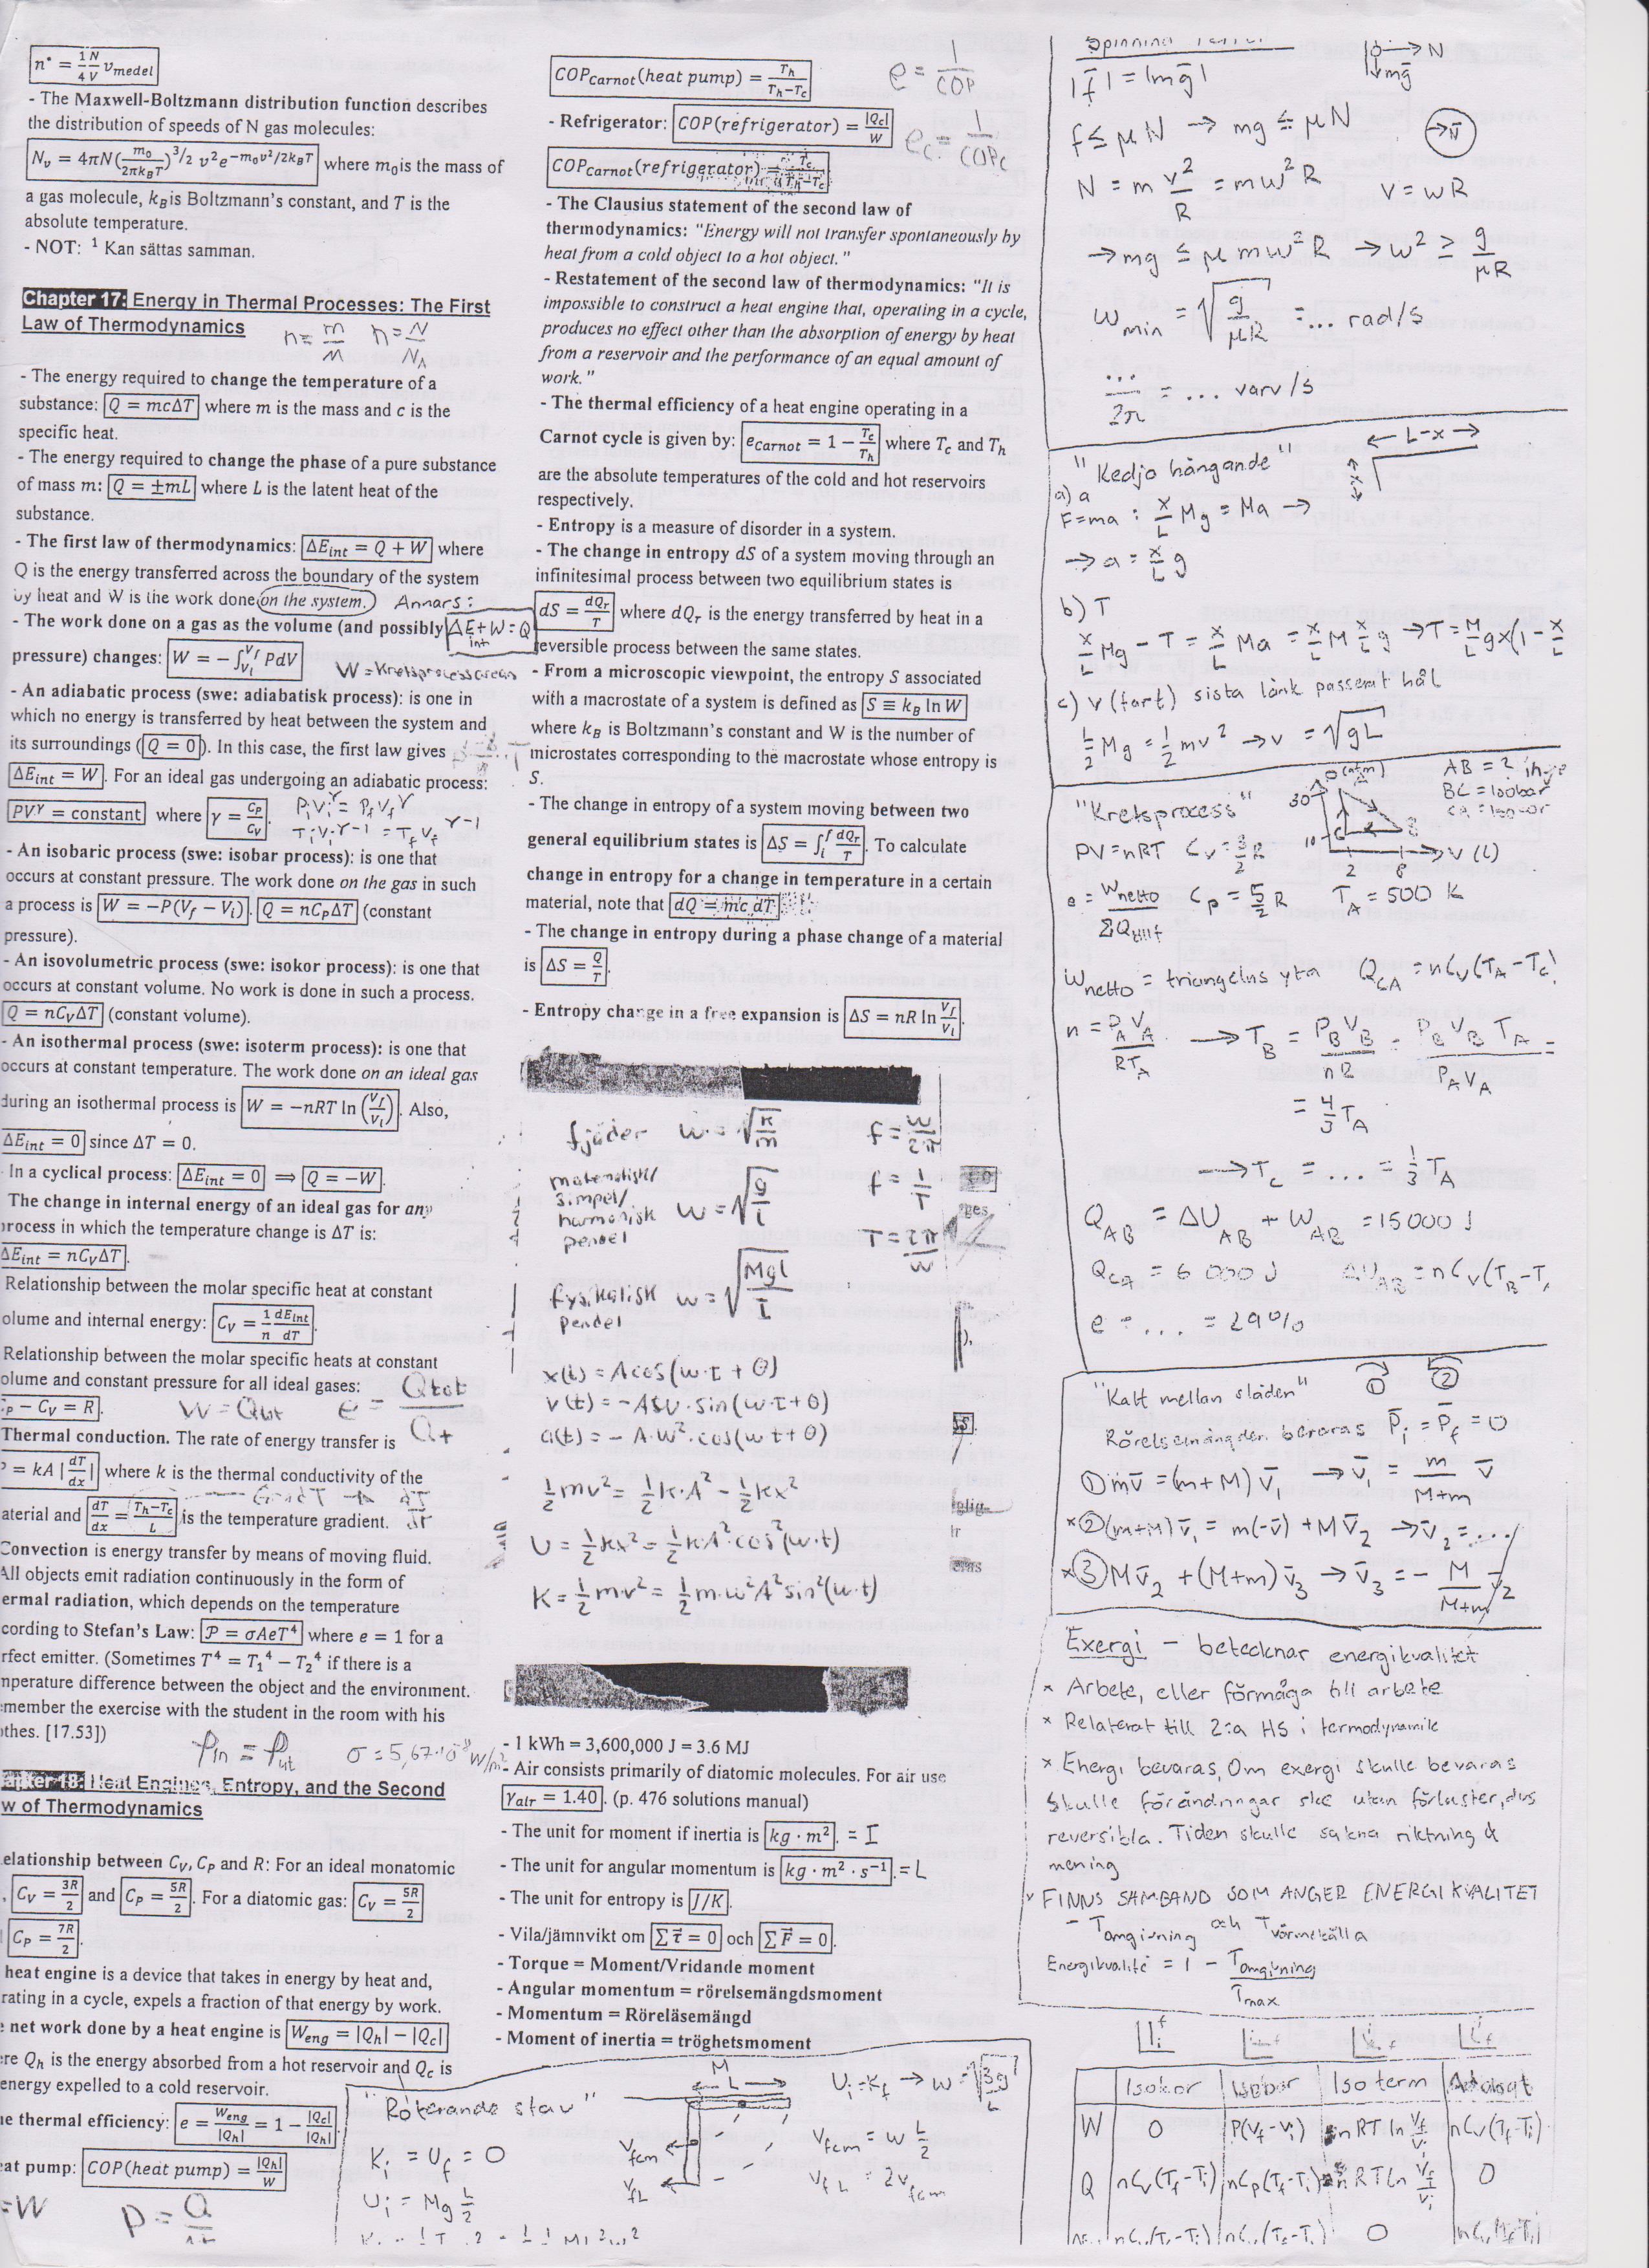 n* = 1/4 N/V v_medel
- The Maxwell-Boltzmann distribution function describes
the distribution of speeds of N gas molecules:
N_v = 4πN(m_0/2πk_BT)^3/2 v^2 e^−m_0v^2/2k_BT where m_0 is the mass of
a gas molecule, k_B is Boltzmann's constant, and T is the
absolute temperature.
- NOT: ^1 Kan sättas samman.
Chapter 17: Energy in Thermal Processes: The First
Law of Thermodynamics
n = m/M n = N/N_A
- The energy required to change the temperature of a
substance: Q = mcΔT where m is the mass and c is the
specific heat.
- The energy required to change the phase of a pure substance
of mass m: Q = ±mL where L is the latent heat of the
substance.
- The first law of thermodynamics: ΔE_int = Q + W where
Q is the energy transferred across the boundary of the system
by heat and W is the work done on the system. Annars:
- The work done on a gas as the volume (and possibly ΔE_int + W = Q
pressure) changes: W = −∫_Vi^Vf PdV W = Kretsprocessarean
- An adiabatic process (swe: adiabatisk process): is one in
which no energy is transferred by heat between the system and
its surroundings (Q = 0). In this case, the first law gives
ΔE_int = W. For an ideal gas undergoing an adiabatic process:
PV^γ = constant where γ = C_P/C_V. P_iV_i^γ = P_fV_f^γ
T_iV_i^γ−1 = T_fV_f^γ−1
- An isobaric process (swe: isobar process): is one that
occurs at constant pressure. The work done on the gas in such
a process is W = −P(V_f − V_i). Q = nC_PΔT (constant
pressure).
- An isovolumetric process (swe: isokor process): is one that
occurs at constant volume. No work is done in such a process.
Q = nC_VΔT (constant volume).
- An isothermal process (swe: isoterm process): is one that
occurs at constant temperature. The work done on an ideal gas
during an isothermal process is W = −nRT ln(V_f/V_i). Also,
ΔE_int = 0 since ΔT = 0.
In a cyclical process: ΔE_int = 0 ⟹ Q = −W.
The change in internal energy of an ideal gas for any
process in which the temperature change is ΔT is:
ΔE_int = nC_VΔT.
Relationship between the molar specific heat at constant
olume and internal energy: C_V = 1/n dE_int/dT.
Relationship between the molar specific heats at constant
olume and constant pressure for all ideal gases:
C_P − C_V = R. W = Q_tot e = Q_tot/Q_+
Thermal conduction. The rate of energy transfer is
P = kA|dT/dx| where k is the thermal conductivity of the
aterial and dT/dx = T_h−T_c/L is the temperature gradient.
Convection is energy transfer by means of moving fluid.
All objects emit radiation continuously in the form of
ermal radiation, which depends on the temperature
cording to Stefan's Law: P = σAeT^4 where e = 1 for a
rfect emitter. (Sometimes T^4 = T_1^4 − T_2^4 if there is a
mperature difference between the object and the environment.
member the exercise with the student in the room with his
othes. [17.53])
P_in = P_ut σ = 5,67·10^-8 W/m^2
apter 18: Heat Engines, Entropy, and the Second
w of Thermodynamics
elationship between C_V, C_P and R: For an ideal monatomic
, C_V = 3R/2 and C_P = 5R/2. For a diatomic gas: C_V = 5R/2
C_P = 7R/2.
heat engine is a device that takes in energy by heat and,
rating in a cycle, expels a fraction of that energy by work.
e net work done by a heat engine is W_eng = |Q_h| − |Q_c|
ere Q_h is the energy absorbed from a hot reservoir and Q_c is
energy expelled to a cold reservoir.
he thermal efficiency: e = W_eng/|Q_h| = 1 − |Q_c|/|Q_h|.
eat pump: COP(heat pump) = |Q_h|/W
=W P = Q/Δt
COP_Carnot(heat pump) = T_h/T_h−T_c e = 1/COP
- Refrigerator: COP(refrigerator) = |Q_c|/W
e_c = 1/COP_c
COP_Carnot(refrigerator) = T_c/T_h−T_c
- The Clausius statement of the second law of
thermodynamics: "Energy will not transfer spontaneously by
heat from a cold object to a hot object."
- Restatement of the second law of thermodynamics: "It is
impossible to construct a heat engine that, operating in a cycle,
produces no effect other than the absorption of energy by heat
from a reservoir and the performance of an equal amount of
work."
- The thermal efficiency of a heat engine operating in a
Carnot cycle is given by: e_Carnot = 1 − T_c/T_h where T_c and T_h
are the absolute temperatures of the cold and hot reservoirs
respectively.
- Entropy is a measure of disorder in a system.
- The change in entropy dS of a system moving through an
infinitesimal process between two equilibrium states is
dS = dQ_r/T where dQ_r is the energy transferred by heat in a
reversible process between the same states.
- From a microscopic viewpoint, the entropy S associated
with a macrostate of a system is defined as S ≡ k_B ln W
where k_B is Boltzmann's constant and W is the number of
microstates corresponding to the macrostate whose entropy is
S.
- The change in entropy of a system moving between two
general equilibrium states is ΔS = ∫_i^f dQ_r/T. To calculate
change in entropy for a change in temperature in a certain
material, note that dQ = mc dT
- The change in entropy during a phase change of a material
is ΔS = Q/T.
- Entropy change in a free expansion is ΔS = nR ln V_f/V_i.
fjäder w = √k/m f = w/2π
matematisk/
simpel/
harmonisk
pendel w = √g/l f = 1/T
T = 2π/w
fysikalisk
pendel w = √Mgl/I
x(t) = Acos(w·t + θ)
v(t) = −Aw·sin(w·t+θ)
a(t) = −A·w^2·cos(w·t+θ)
1/2 mv^2 = 1/2 k·A^2 − 1/2 kx^2
U = 1/2 kx^2 = 1/2 k·A^2·cos^2(w·t)
K = 1/2 m·v^2 = 1/2 m·w^2A^2sin^2(w·t)
- 1 kWh = 3,600,000 J = 3.6 MJ
- Air consists primarily of diatomic molecules. For air use
γ_air = 1.40. (p. 476 solutions manual)
- The unit for moment if inertia is kg · m^2. = I
- The unit for angular momentum is kg · m^2 · s^−1. = L
- The unit for entropy is J/K.
- Vila/jämnvikt om Σ τ⃗ = 0 och Σ F⃗ = 0.
- Torque = Moment/Vridande moment
- Angular momentum = rörelsemängdsmoment
- Momentum = Röreläsemängd
- Moment of inertia = tröghetsmoment
"Roterande stav"
M
L
U_i = K_f → w = √3g/L
K_i = U_f = 0
v_fcm
v_fcm = w L/2
U_i = Mg L/2
v_fL
v_fL = 2v_fcm
|f̄| = |mḡ| N mḡ
f ≤ μN → mg ≤ μN N̄
N = m v^2/R = mw^2R v = wR
→ mg ≤ μmw^2R → w^2 ≥ g/μR
w_min = √g/μR = ... rad/s
.../2π = ... varv/s
"Kedja hängande" L-x
x
a) a
F=ma : x/L Mg = Ma →
→ a = x/L g
b) T
x/L Mg − T = x/L Ma = x/L M x/L g → T = M/L gx(1 − x/L
c) v (fart) sista länk passerat hål
L/2 Mg = 1/2 mv^2 → v = √gL
"Kretsprocess" P(atm) AB = ?
30 BC = Isobar
10 CA = Isokor
2 8 V(l)
PV = nRT C_V = 3/2 R
e = W_netto/ΣQ_tillf C_P = 5/2 R T_A = 500 K
W_netto = triangelns yta Q_CA = nC_V(T_A − T_C)
n = P_AV_A/RT_A → T_B = P_BV_B/nR = P_BV_BT_A/P_AV_A =
= 4/3 T_A
→ T_C = ... = 1/3 T_A
Q_AB = ΔU_AB + W_AB = 15000 J
Q_CA = 6 000 J ΔU_AB = nC_V(T_B − T
e = ... = 29%
"Katt mellan släden" ① ②
Rörelsemängden bevaras p̄_i = p̄_f = 0
① mv̄ = (m+M)v̄_1 → v̄_1 = m/M+m v̄
×② (m+M)v̄_1 = m(−v̄) + Mv̄_2 → v̄_2 = ...
×③ Mv̄_2 + (M+m)v̄_3 → v̄_3 = − M/M+m v̄_2
Exergi – betecknar energikvalitet
× Arbete, eller förmåga till arbete
× Relaterat till 2:a HS i termodynamik
× Energi bevaras, Om exergi skulle bevaras
skulle förändringar ske utan förluster, dvs
reversibla. Tiden skulle sakna riktning &
mening
× FINNS SAMBAND SOM ANGER ENERGIKVALITET
– T_omgivning och T_värmekälla
Energikvalité = 1 − T_omgivning/T_max
Isokor Isobar Isoterm Adiabat
W 0 P(V_f−V_i) nRT ln V_f/V_i nC_V(T_f−T_i)
Q nC_V(T_f−T_i) nC_P(T_f−T_i) nRT ln V_f/V_i 0
nC_V(T_f−T_i) nC_V(T_f−T_i) 0